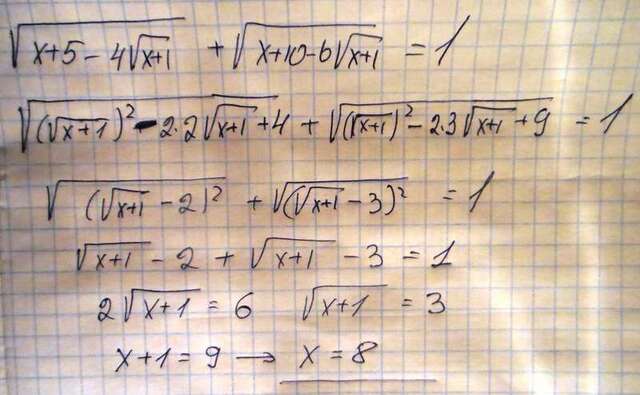 √(x+5-4√(x+1)) + √(x+10-6√(x+1)) = 1
√((√(x+1))² - 2·2√(x+1) + 4) + √((√(x+1))² - 2·3√(x+1) + 9) = 1
√((√(x+1) - 2)²) + √((√(x+1) - 3)²) = 1
√(x+1) - 2 + √(x+1) - 3 = 1
2√(x+1) = 6 √(x+1) = 3
x+1 = 9 → x = 8